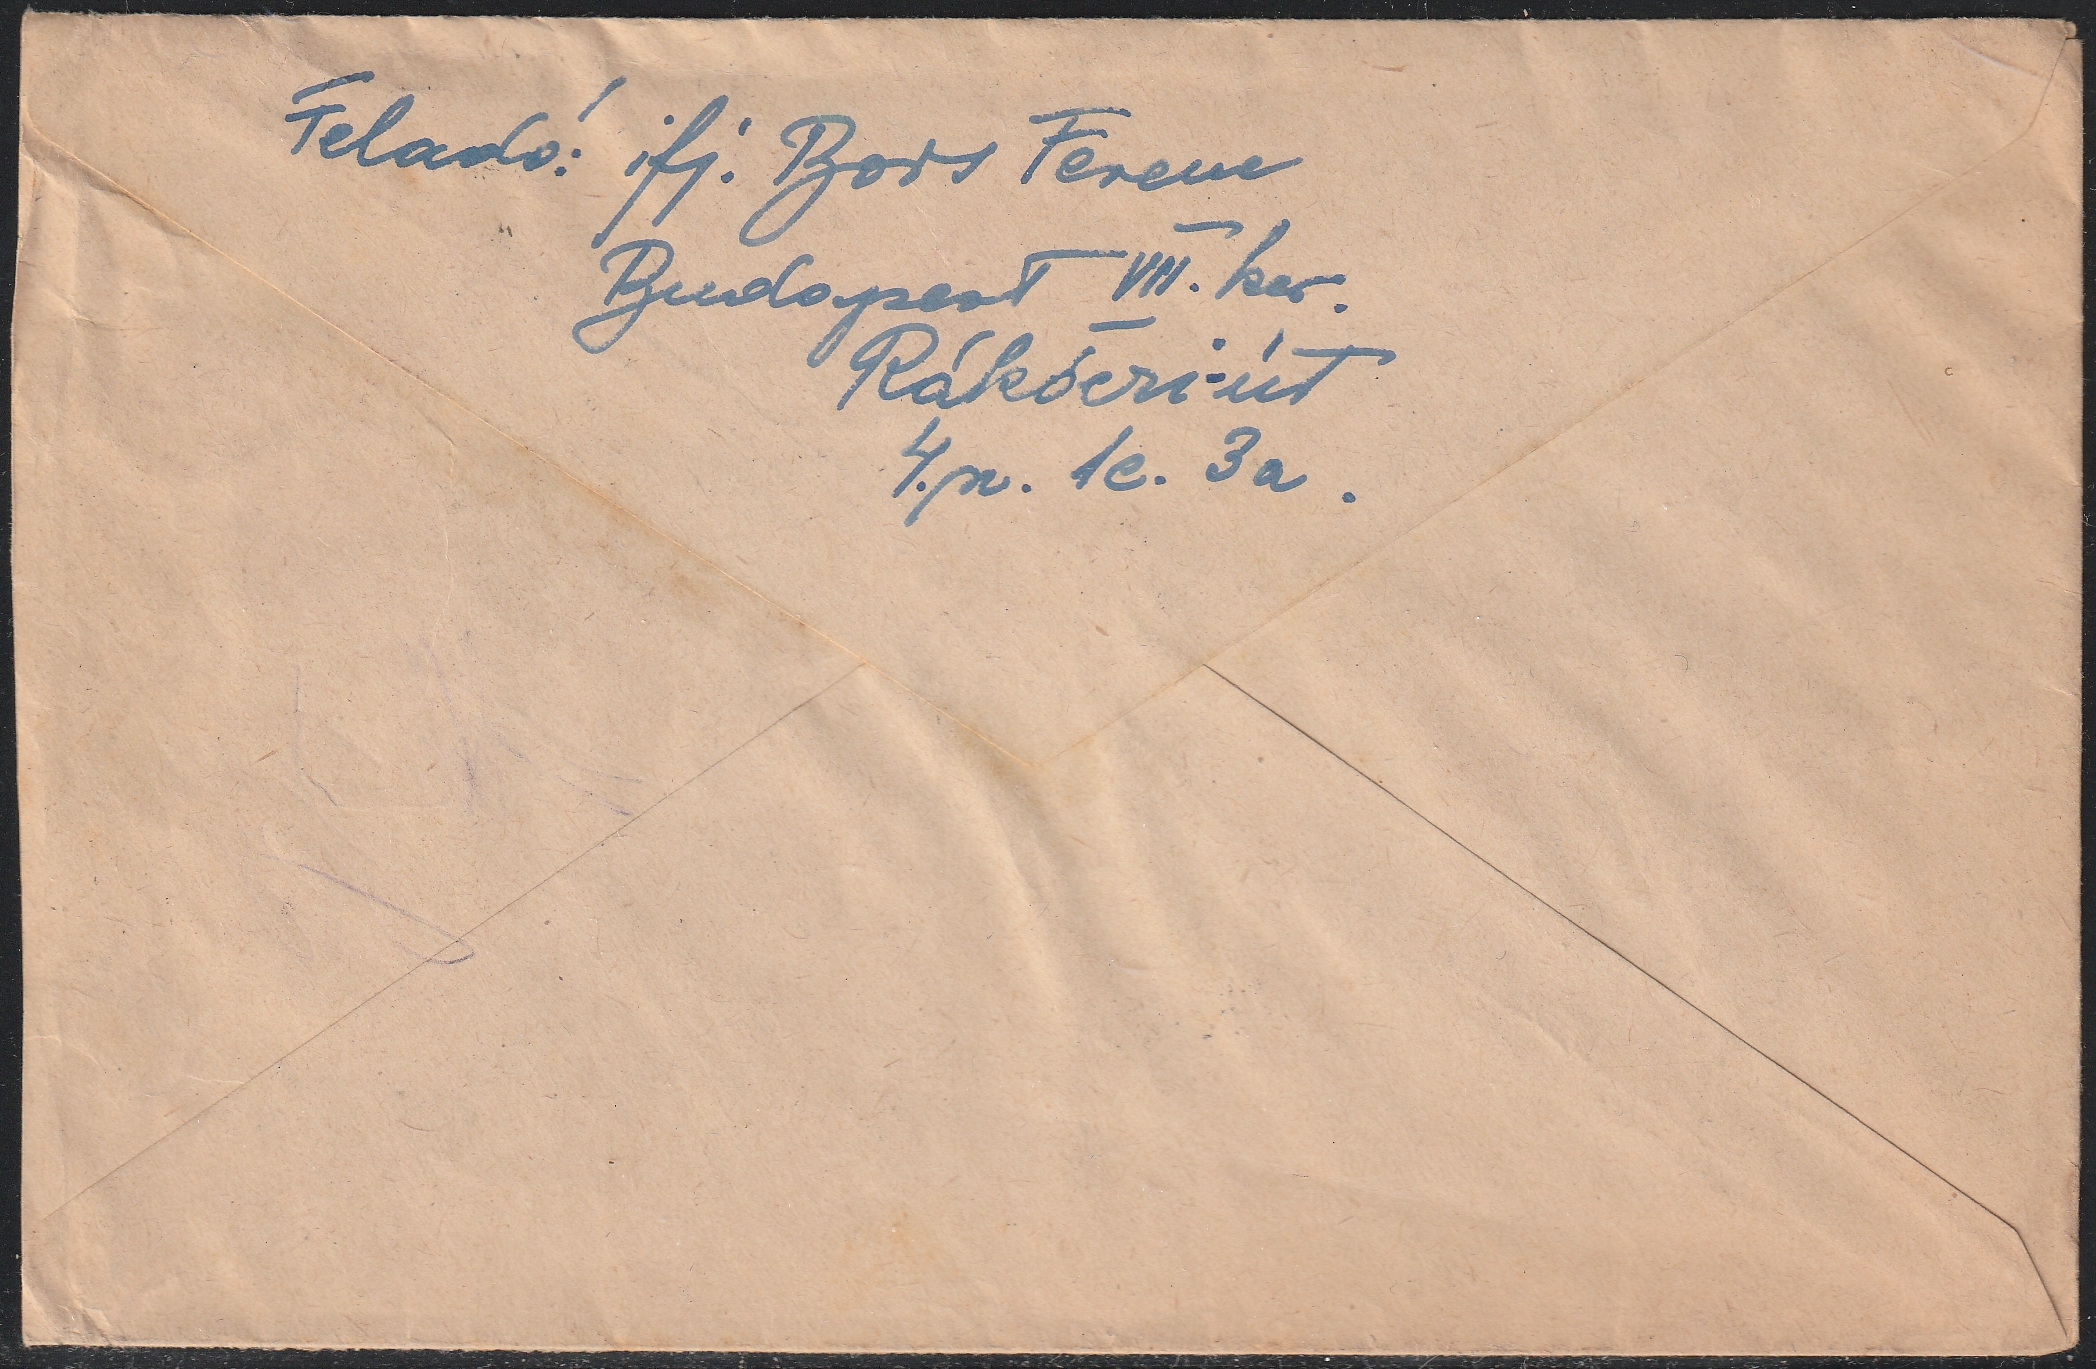 Feladó: ifj. Bors Ferenc
Budapest VII. ker.
Rákóczi-út
4. sz. 1e. 3a.